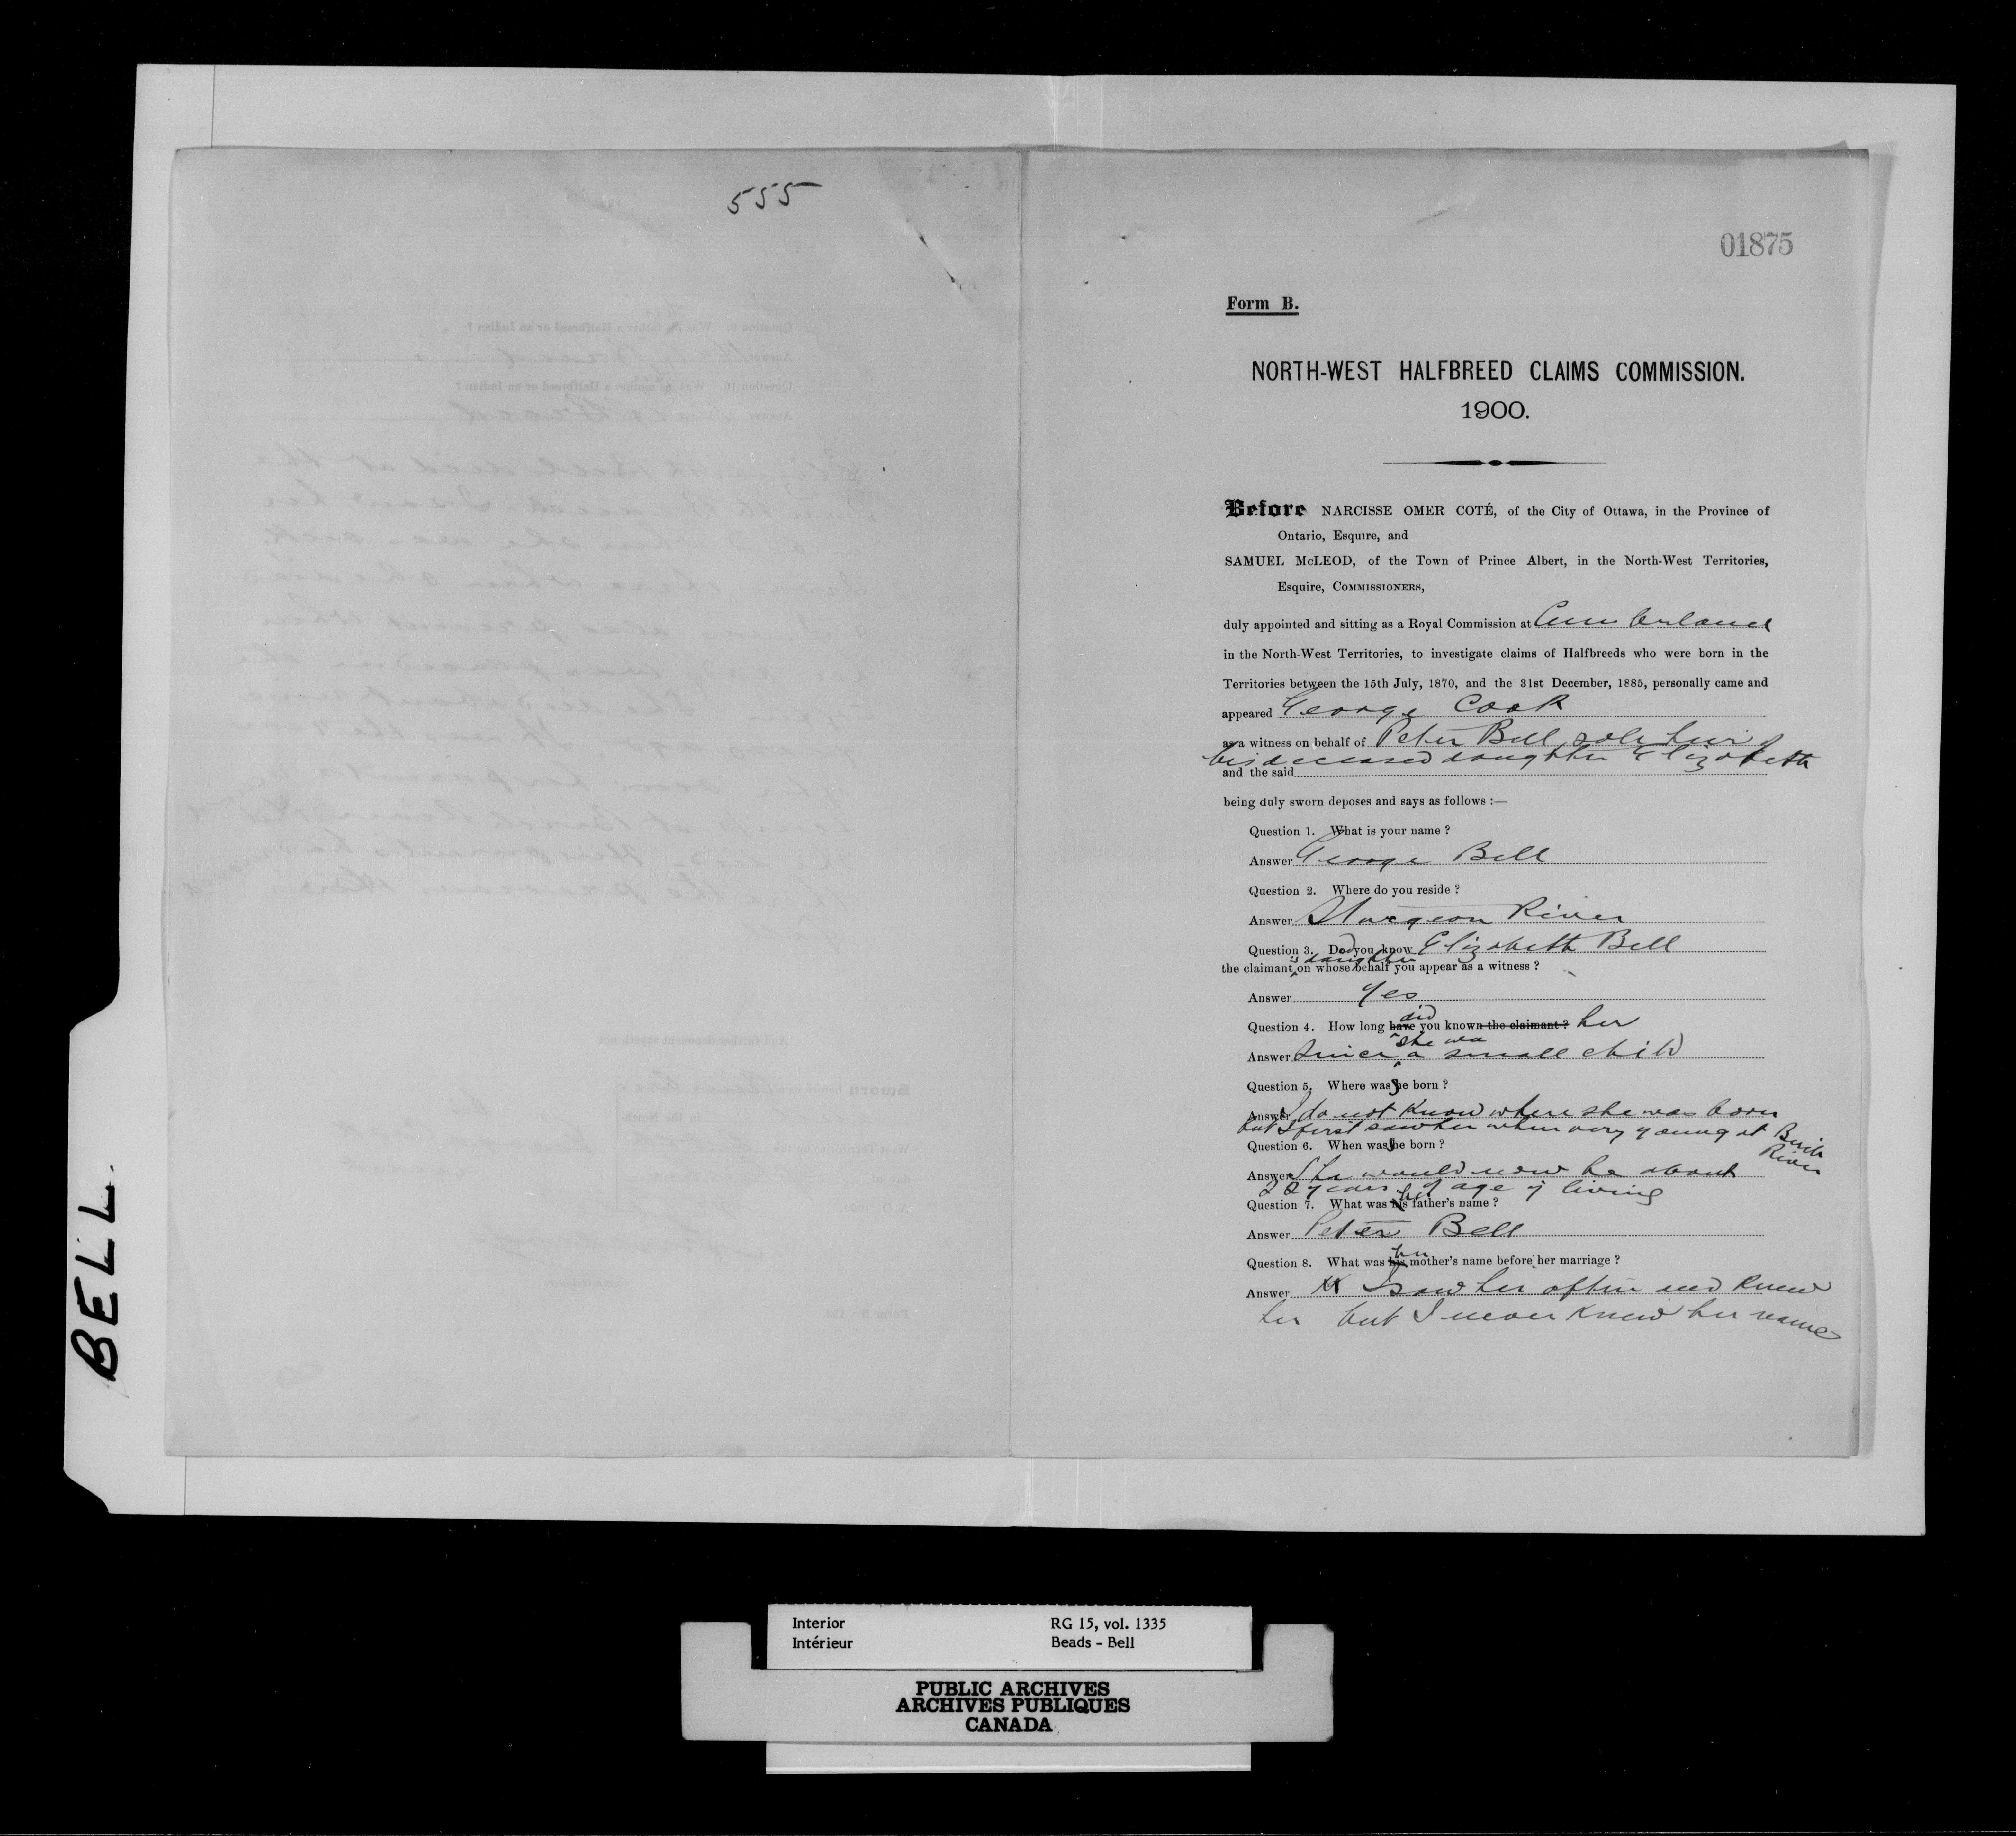 555
01875
Form B.
NORTH-WEST HALFBREED CLAIMS COMMISSION.
1900.
Before NARCISSE OMER COTÉ, of the City of Ottawa, in the Province of
Ontario, Esquire, and
SAMUEL McLEOD, of the Town of Prince Albert, in the North-West Territories,
Esquire, COMMISSIONERS,
duly appointed and sitting as a Royal Commission at Cumberland
in the North-West Territories, to investigate claims of Halfbreeds who were born in the
Territories between the 15th July, 1870, and the 31st December, 1885, personally came and
appeared George Cook
as a witness on behalf of Peter Bell sole heir of
his deceased daughter Elizabeth
and the said
being duly sworn deposes and says as follows :—
Question 1. What is your name ?
Answer George Bell
Question 2. Where do you reside ?
Answer Sturgeon River
Question 3. Did you know Elizabeth Bell
the claimant's daughter on whose behalf you appear as a witness ?
Answer Yes
Question 4. How long have did you known the claimant ? her
Answer Since she was a small child
Question 5. Where was she born ?
Answer I do not know where she was born
but I first saw her when very young at Birch River
Question 6. When was she born ?
Answer She would now be about
22 years of age if living
Question 7. What was his her father's name ?
Answer Peter Bell
Question 8. What was his her mother's name before her marriage ?
Answer I saw her often and knew
her but I never knew her name
BELL.
Interior RG 15, vol. 1335
Intérieur Beads - Bell
PUBLIC ARCHIVES
ARCHIVES PUBLIQUES
CANADA